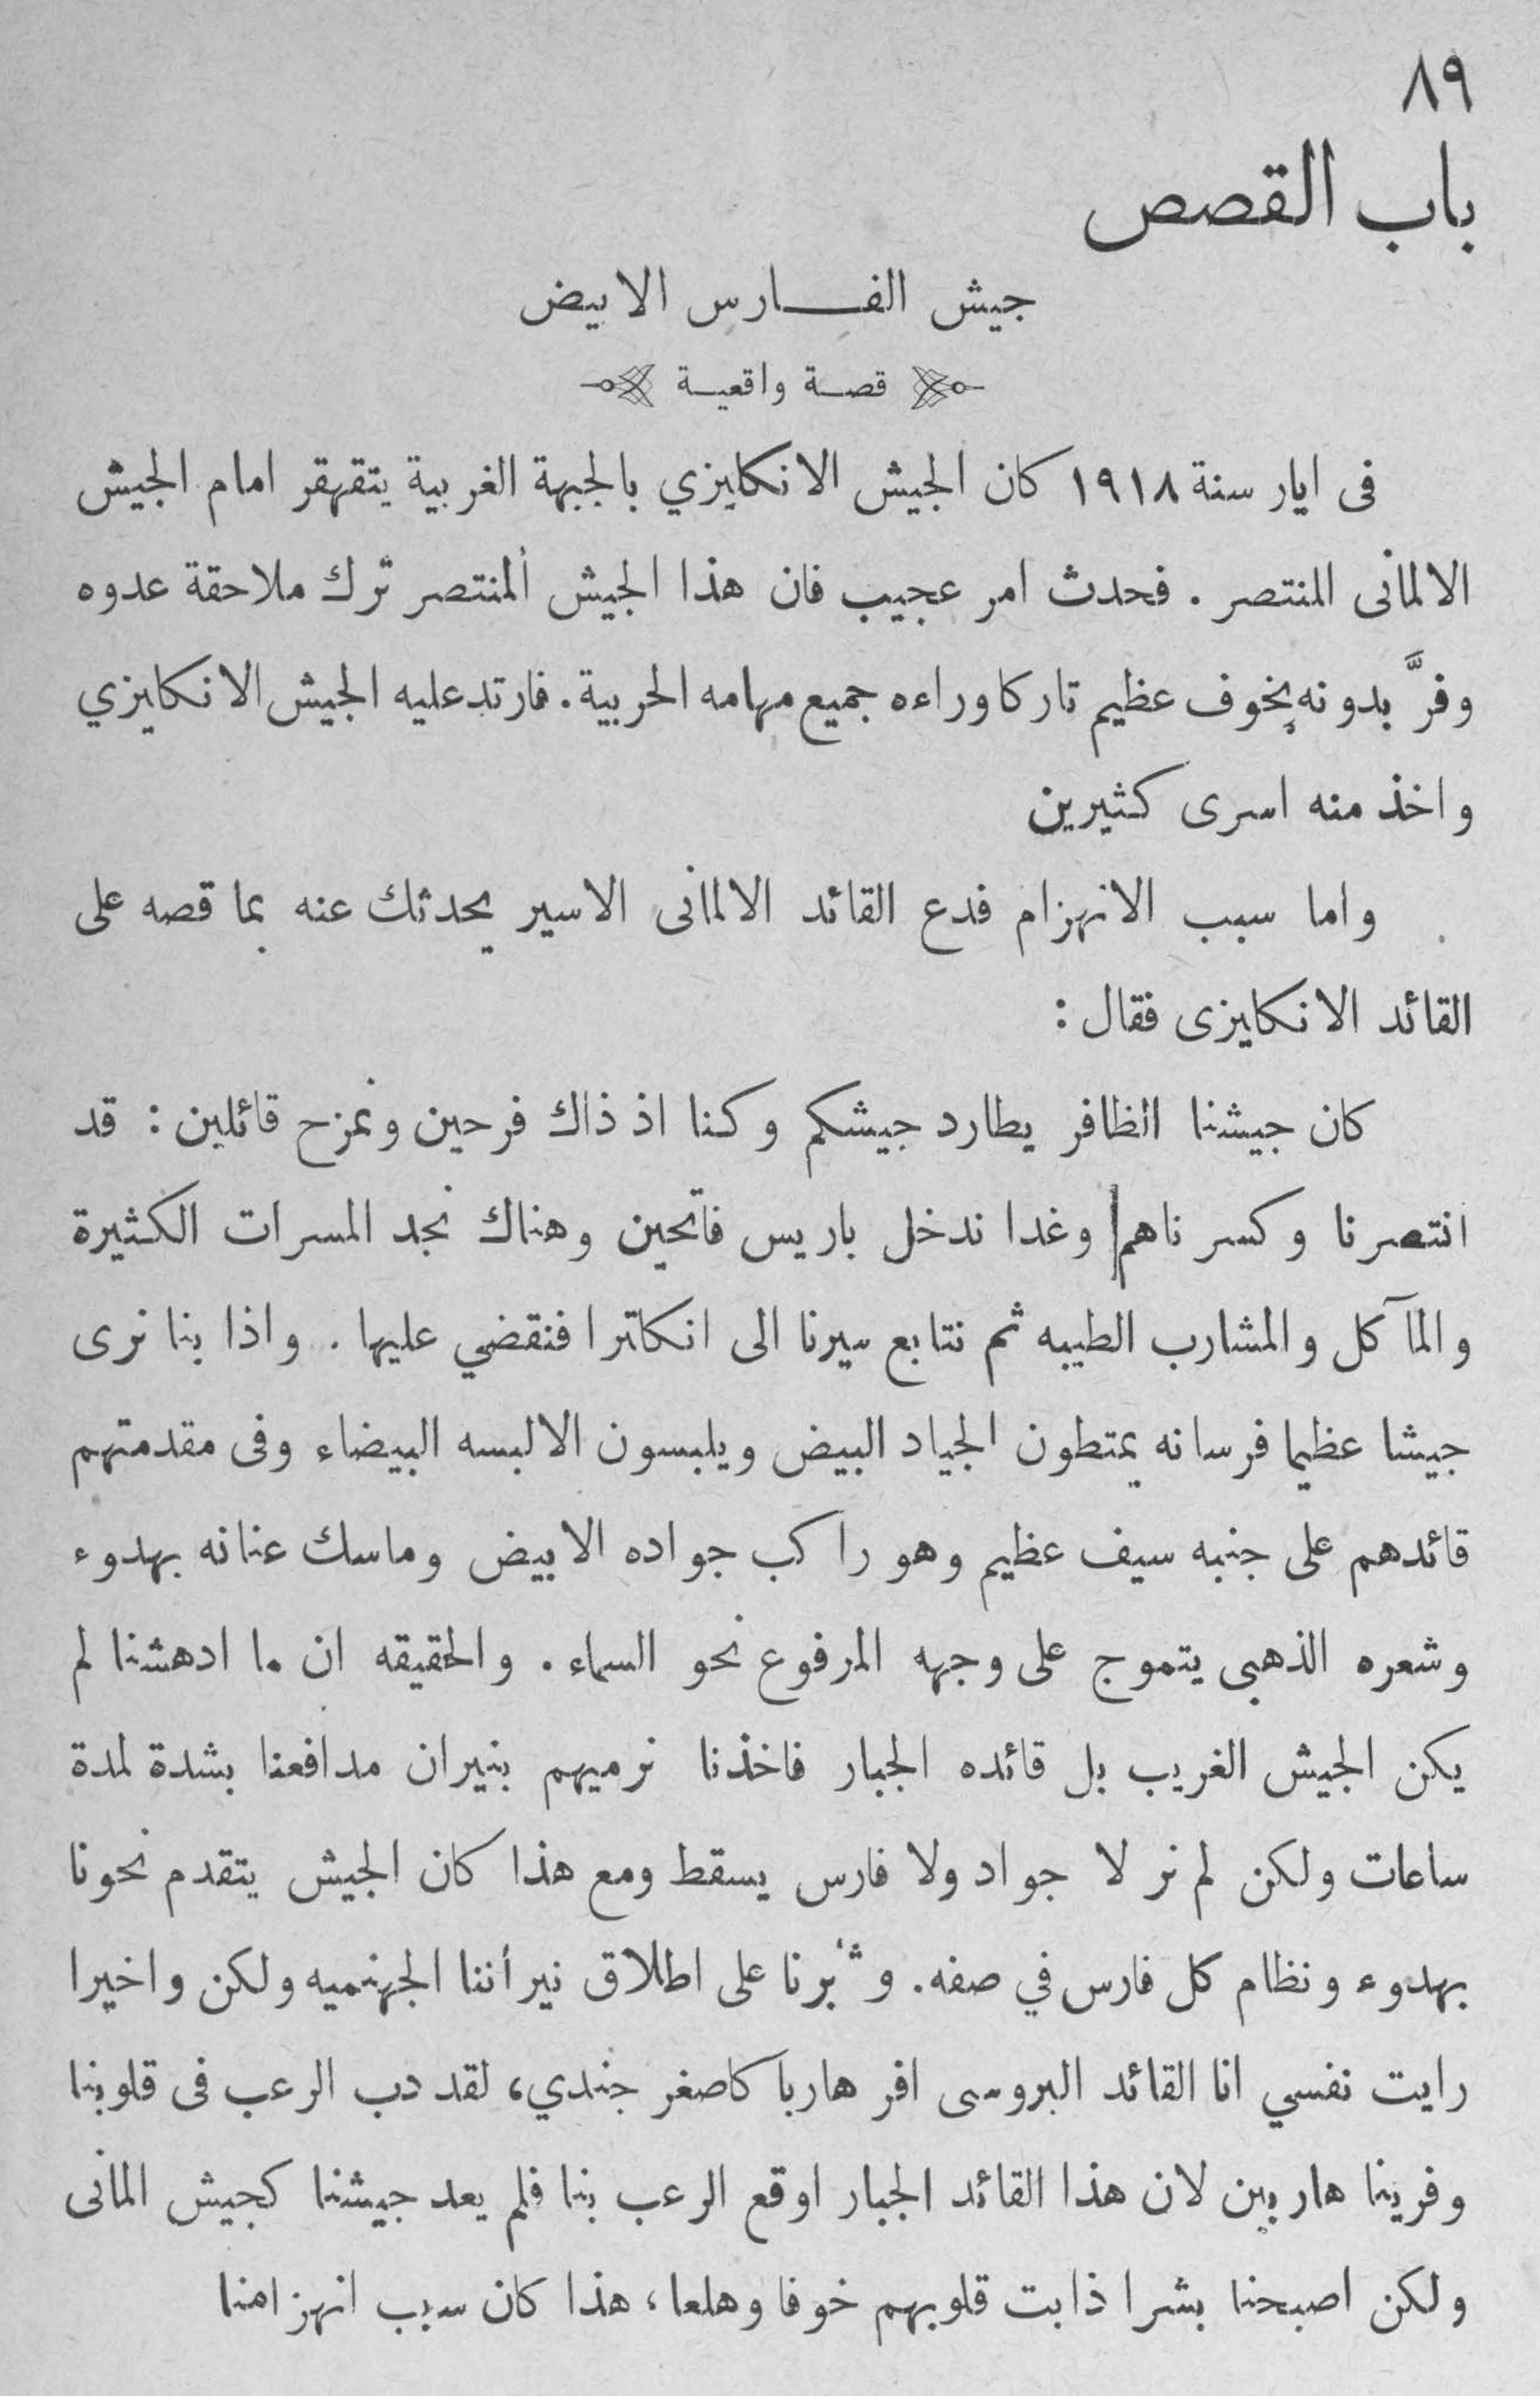 ٨٩
باب القصص
جيش الفـــارس الابيض
قصـة واقعيـة
فى ايار سنة ١٩١٨ كان الجيش الانكليزي بالجبهة الغربية يتقهقر امام الجيش
الالمانى المنتصر . فحدث امر عجيب فان هذا الجيش المنتصر ترك ملاحقة عدوه
وفرَّ بدونه بخوف عظيم تاركا وراءه جميع مهامه الحربية . فارتد عليه الجيش الانكليزي
واخذ منه اسرى كثيرين
واما سبب الانهزام فدع القائد الالمانى الاسير يحدثك عنه بما قصه على
القائد الانكليزى فقال :
كان جيشنا الظافر يطارد جيشكم وكنا اذ ذاك فرحين ونمزح قائلين : قد
انتصرنا وكسرناهم وغدا ندخل باريس فاتحين وهناك نجد المسرات الكثيرة
والمآكل والمشارب الطيبه ثم نتابع سيرنا الى انكلترا فنقضي عليها . واذا بنا نرى
جيشا عظيما فرسانه يمتطون الجياد البيض ويلبسون الالبسه البيضاء وفى مقدمتهم
قائدهم على جنبه سيف عظيم وهو راكب جواده الابيض وماسك عنانه بهدوء
وشعره الذهبى يتموج على وجهه المرفوع نحو السماء . والحقيقه ان ما ادهشنا لم
يكن الجيش الغريب بل قائده الجبار فاخذنا نرميهم بنيران مدافعنا بشدة لمدة
ساعات ولكن لم نر لا جواد ولا فارس يسقط ومع هذا كان الجيش يتقدم نحونا
بهدوء ونظام كل فارس في صفه . وثابرنا على اطلاق نيرأننا الجهنميه ولكن واخيرا
رايت نفسي انا القائد البروسى افر هاربا كاصغر جندي، لقد دب الرعب فى قلوبنا
وفرينا هاربين لان هذا القائد الجبار اوقع الرعب بنا فلم يعد جيشنا كجيش المانى
ولكن اصبحنا بشرا ذابت قلوبهم خوفا وهلعا، هذا كان سبب انهزامنا